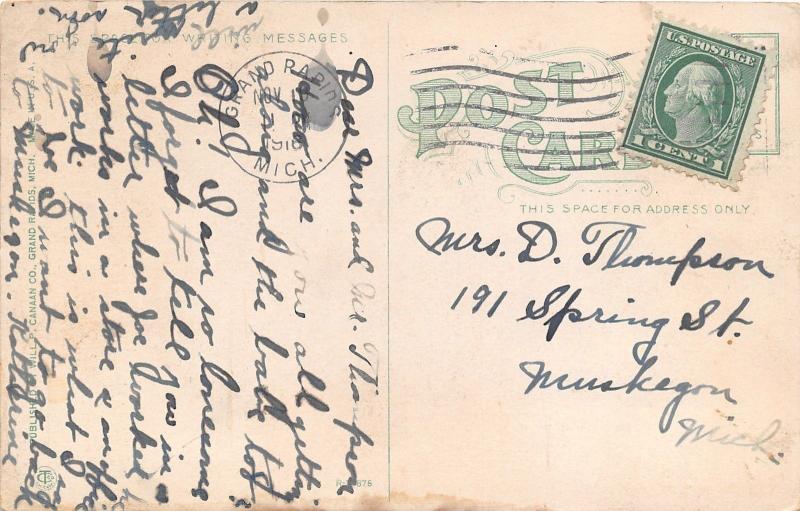 THIS SPACE FOR WRITING MESSAGES
Dear Mrs. and Mr. Thompson
How are you all getting
along and the baby to?
Oh! I am so lonesome
I forget to tell you in a
letter where Joe worked he
works in a store & an office
work. this is what I
to Joe I want to go back
to Muskegon. Katherine
will
a letter
soon.
PUBLISHED BY WILL P. CANAAN CO., GRAND RAPIDS, MICH. MADE IN U. S. A.
GRAND RAPIDS
MICH.
POST
CARD
U.S. POSTAGE
1 CENT 1
THIS SPACE FOR ADDRESS ONLY.
Mrs. D. Thompson
191 Spring St.
Muskegon
Mich.